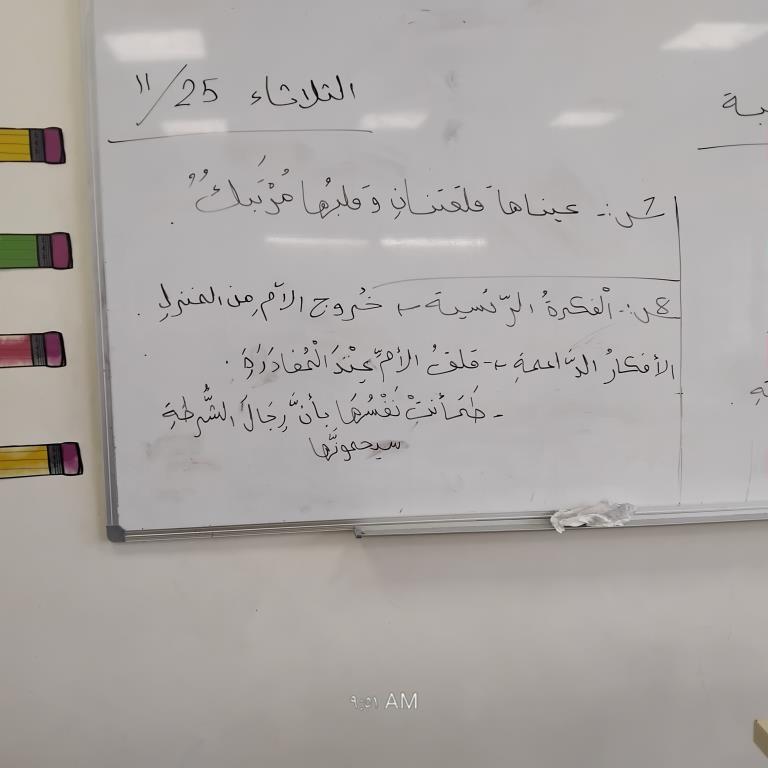 الثلاثاء 25/11
س7:- عيناها قلقتنانِ وقلبُها مُرْتَبكٌ .
س8:- الْفكرةُ الرّئسية ← خُروج الأمّ مِن المنزلِ .
الأفكارُ الدّاعمةِ ← - قلقُ الأمّ عِنْدَ الْمُغادَرَةِ .
- طَمَأنتْ نَفْسُهَا بأنَّ رِجَالَ الشُّرطةِ
سيحمونَّها
بة
ـةِ
٩:٥١ AM